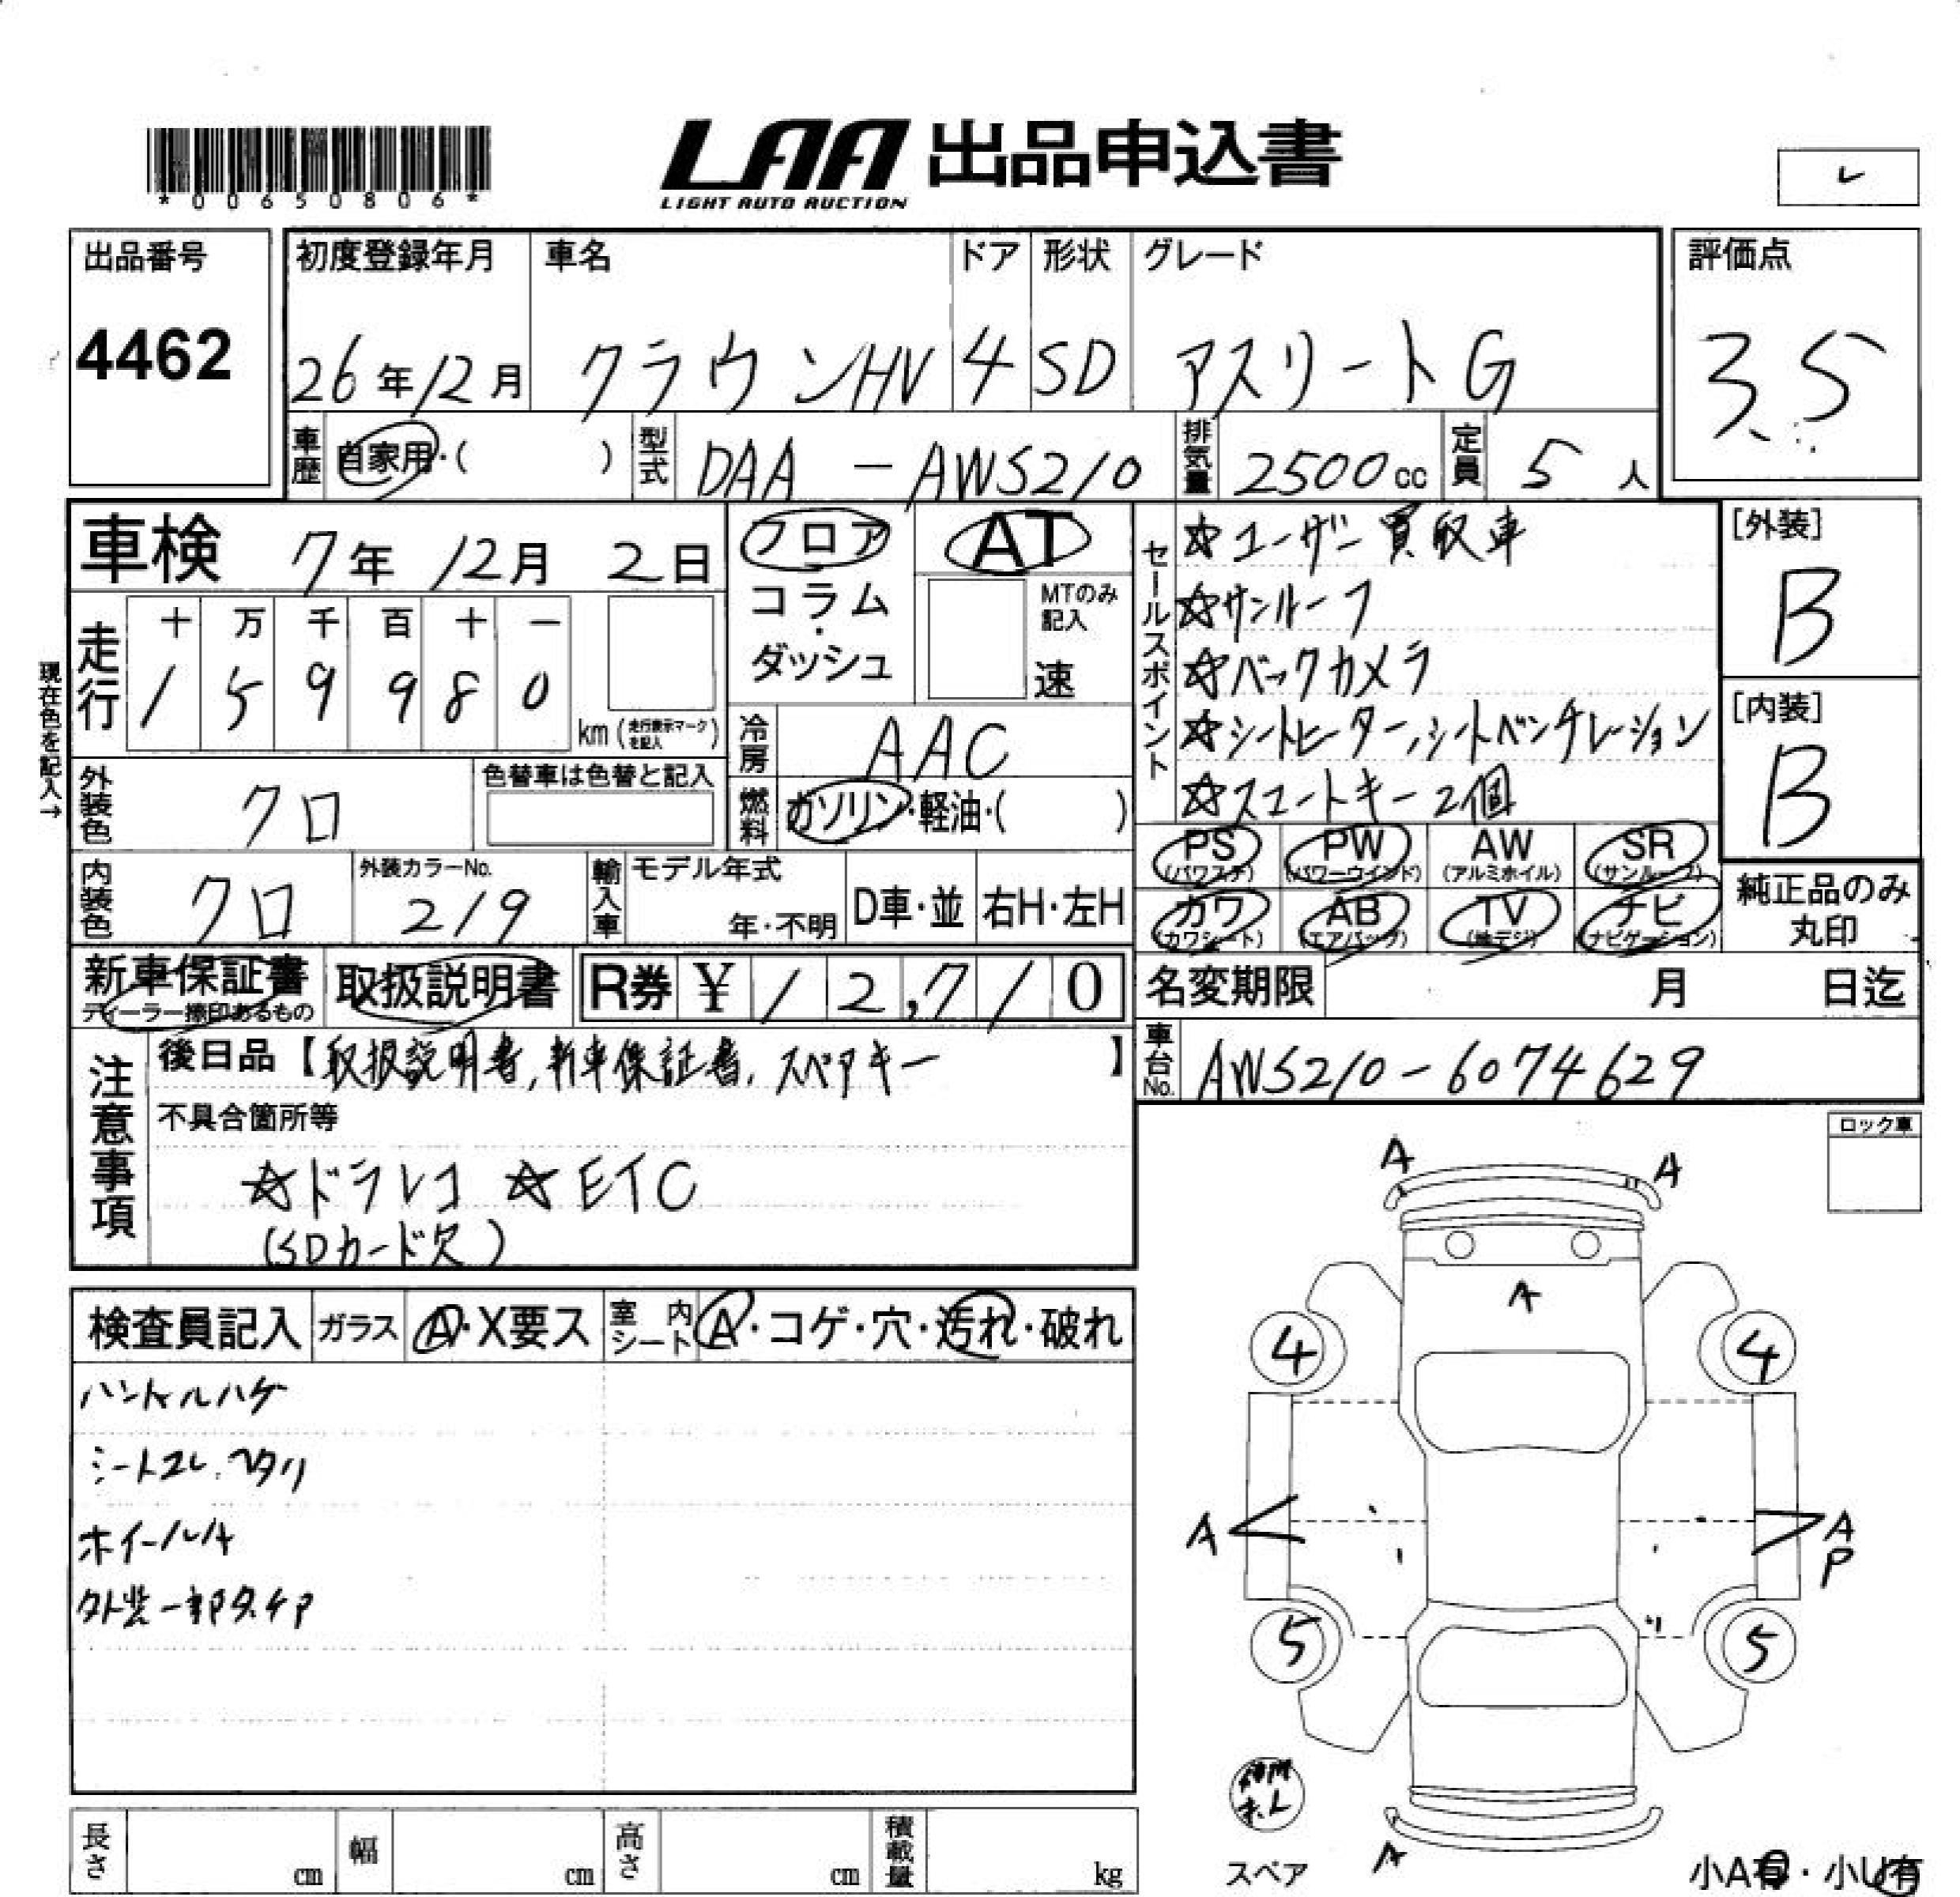 *00650806*
LAA 出品申込書
LIGHT AUTO AUCTION
レ
出品番号
4462
初度登録年月 車名 ドア 形状 グレード
26年12月 クラウンHV 4 SD アスリートG
評価点
3.5
車歴 自家用・( ) 型式 DAA-AWS210 排気量 2500cc 定員 5人
車検 7年12月2日
フロア
コラム
・
ダッシュ
AT
MTのみ記入
速
現在色を記入→
走行 十 万 千 百 十 一
1 5 9 9 8 0
km(走行表示マークを記入)
冷房 AAC
外装色 クロ
色替車は色替と記入
燃料 ガソリン・軽油・( )
セールスポイント
☆ユーザー買取車
☆サンルーフ
☆バックカメラ
☆シートヒーター,シートベンチレーション
☆スマートキー2個
[外装]
B
[内装]
B
内装色 クロ
外装カラーNo.
219
輸入車 モデル年式
年・不明
D車・並 右H・左H
PS (パワステ) PW (パワーウインド) AW (アルミホイル) SR (サンルーフ)
カワ (カワシート) AB (エアバッグ) TV (地デジ) ナビ (ナビゲーション)
純正品のみ
丸印
新車保証書
ディーラー捺印あるもの
取扱説明書 R券 ¥12,710
名変期限 月 日迄
車台No. AWS210-6074629
注意事項
後日品【取扱説明書,新車保証書,スペアキー】
不具合箇所等
☆ドラレコ ☆ETC
(SDカード欠)
検査員記入 ガラス A・X要ス 室内シート A・コゲ・穴・汚れ・破れ
ハンドルハゲ
シートスレ.ヘタリ
ホイールA
外装一部タッチP
ロック車
A A
A
4 4
A A
P
5 5
A
スペア
小A有・小U有
長さ cm 幅 cm 高さ cm 積載量 kg